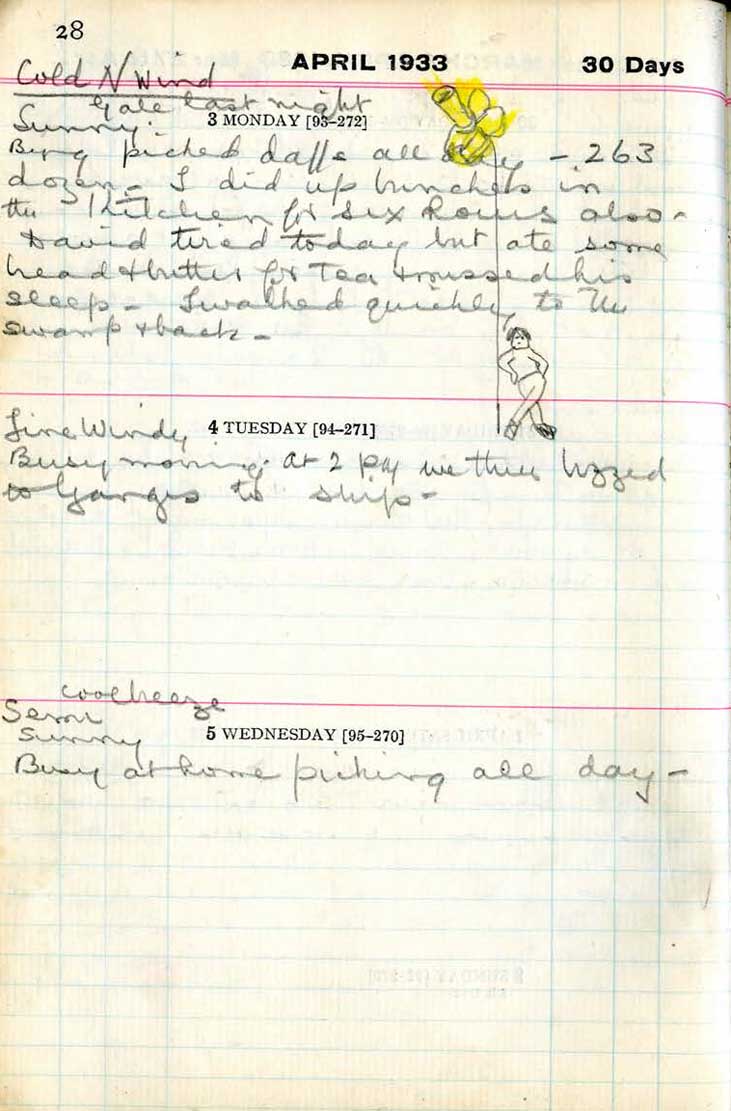 28
APRIL 1933 30 Days
Cold N Wind
Gale last night
Sunny. 3 MONDAY [93-272]
picked daffs all day - 263
dozen - I did up bunches in
the Kitchen for six hours also -
David tired today but ate some
bread & butter for Tea & missed his
sleep - I walked quickly to the
swamp & back -
Fine Windy 4 TUESDAY [94-271]
Busy morning. At 2 pm we three
to Ganges to ship -
cool breeze
Semi
Sunny 5 WEDNESDAY [95-270]
Busy at home picking all day -